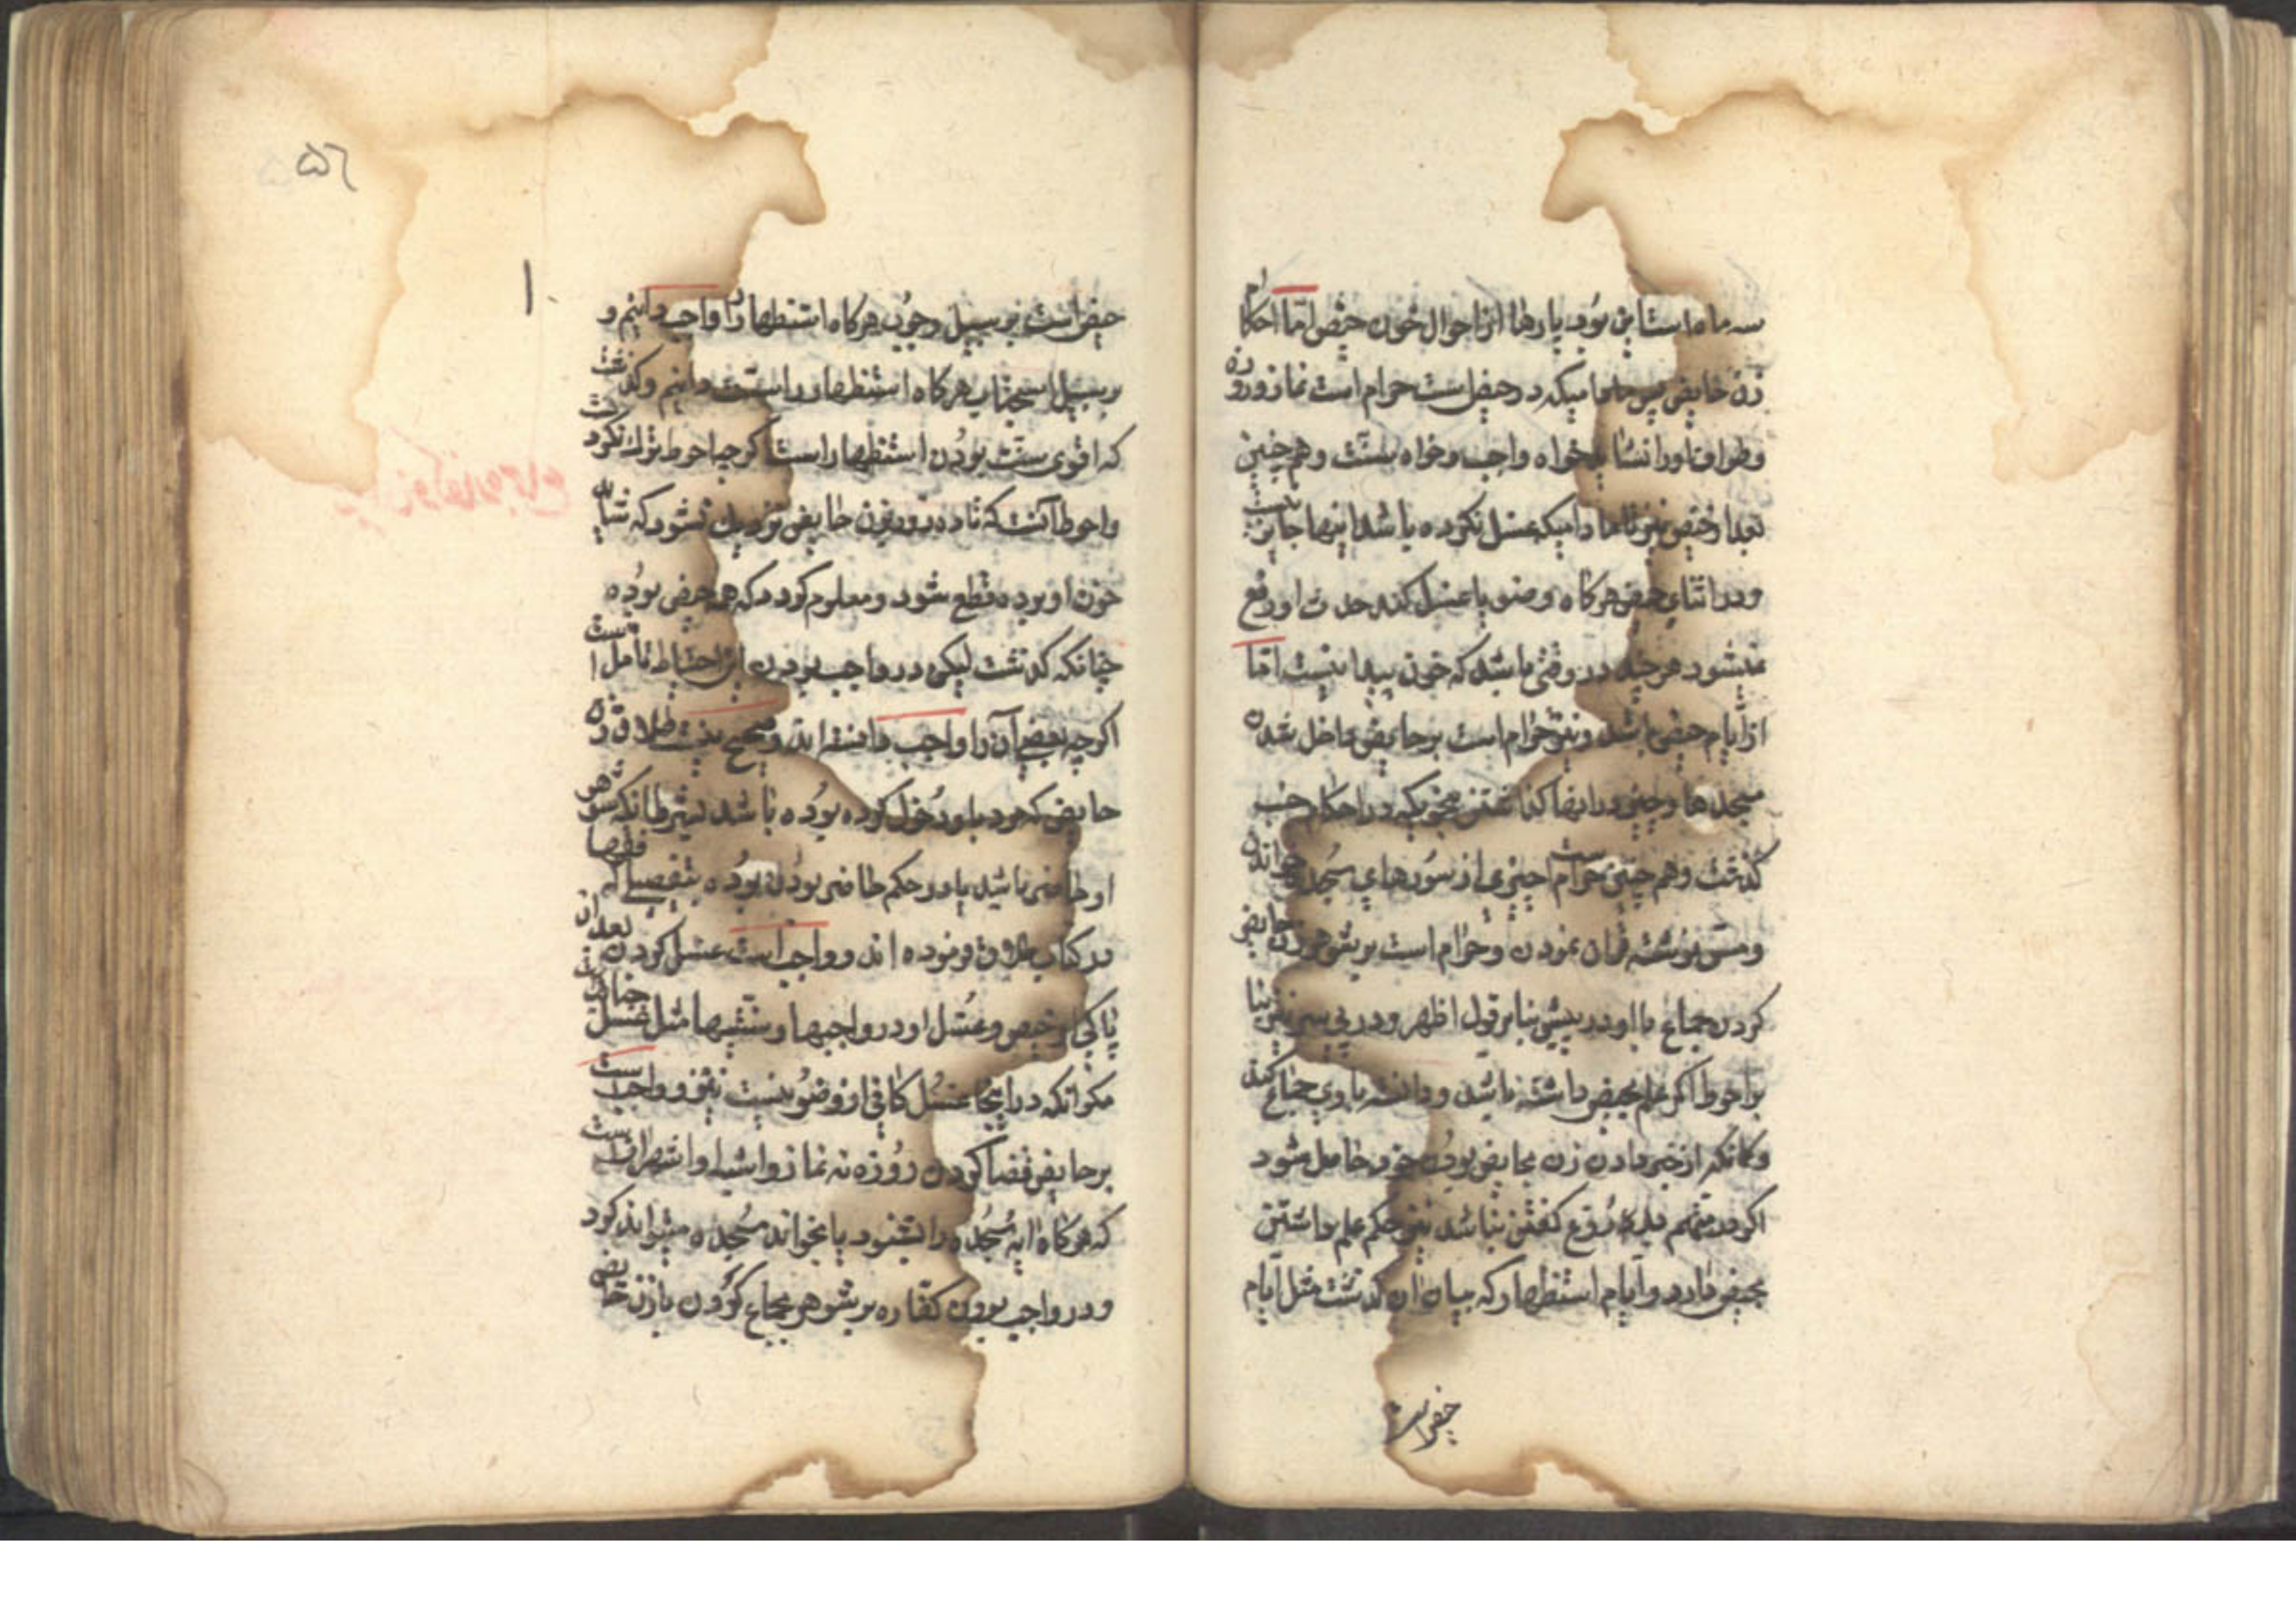 سه ماه است این بود پارها از احوال خون حیض امّا احکام
زن حایض پس مادامیکه در حیض است حرام است نماز و روزه
و طواف او را نسبت خواه واجب و خواه سنّت و هم چنین
بعد از حیض نیز تا مادامیکه غسل نکرده باشد اینها جایز نیست
و در اثنای حیض هرکاه وضو یا غسل کند حدث او رفع
نمیشود هر چند در وقتی باشد که خون پیدا نیست امّا
از ایام حیض باشد و نیز حرام است بر حایض داخل شدن
مسجدها و چیزی در اینها کذاشتن بنحویکه در احکام جنب
کذشت و هم چنین حرام است چیزی از سورهای سجده خواندن
و مسّ نوشته قران نمودن و حرام است بر شوهر زن حایض
کردن جماع با او در پیش بنابر قول اظهر و در پس نیز بنا
بر احوط اکر علم بحیض داشته باشد و دانسته با وی جماع کند
و کانکه از خبر دادن زن بحایض بودن خود حاصل شود
اکر در متهم بدروغ کفتن نباشد نیز حکم علم داشتن
بحیض دارد و ایام استظهار که بیان آن کذشت مثل ایام
حیض است
۵۶
حیض است بر سبیل وجوب هرکاه استظهار را واجب دانیم و
بر سبیل استحباب هرکاه استظهار را سنّت دانیم و کذشت
که اقوی سنّت بودن استظهار است اکر چه احوط ترک نکردنست
و احوط آنست که تا ده روز بزن حایض نزدیک نشود که شاید
خون او بر ده قطع شود و معلوم کردد که همه حیض بوده
چنانکه کذشت لیکن در واجب بودن این احتیاط تامل است
اکر چه بعضی آن را واجب دانسته اند و صحیح نیست طلاق زن
حایض که مرد باو دخول کرده بوده باشد بشرط انکه شوهر
او حاضر باشد یا در حکم حاضر بودن بوده بتفصیلی که فقها
در کتاب طلاق فرموده اند و واجب است غسل کردن بعد از
پاکی از حیض و غسل او در واجبها و سنّتیها مثل غسل جنابت
مکر انکه در اینجا غسل کافی از وضو نیست نیز و واجبست
بر حایض قضا کردن روزه نه نماز و اشبه و اشهر آنست
که هرکاه آیه سجده را بشنود یا بخواند سجده میتواند کرد
و در واجب بودن کفاره بر شوهر بجماع کردن با زن حایض